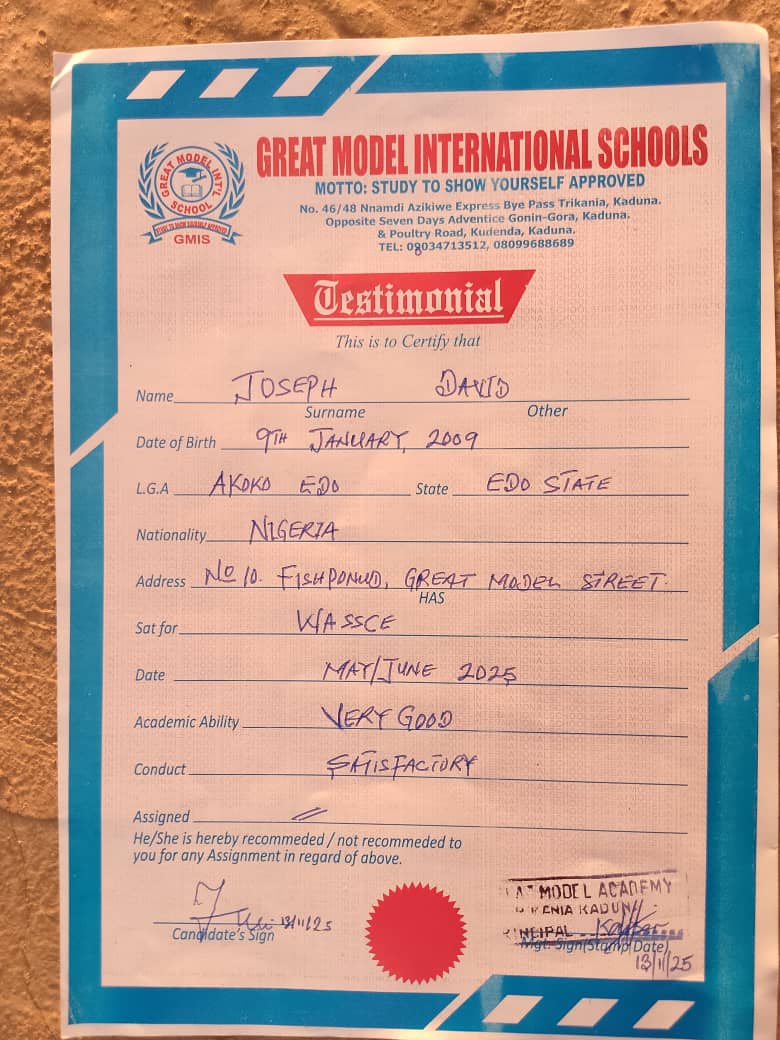 GREAT MODEL INT'L
SCHOOL
STUDY TO SHOW YOURSELF APPROVED
GMIS
GREAT MODEL INTERNATIONAL SCHOOLS
MOTTO: STUDY TO SHOW YOURSELF APPROVED
No. 46/48 Nnamdi Azikiwe Express Bye Pass Trikania, Kaduna.
Opposite Seven Days Adventice Gonin-Gora, Kaduna.
& Poultry Road, Kudenda, Kaduna.
TEL: 08034713512, 08099688689
Testimonial
This is to Certify that
Name JOSEPH DAVID
Surname Other
Date of Birth 9TH JANUARY, 2009
L.G.A AKOKO EDO State EDO STATE
Nationality NIGERIA
Address No 10. FISHPONUD, GREAT MODEL STREET.
HAS
Sat for WASSCE
Date MAY/JUNE 2025
Academic Ability VERY GOOD
Conduct SATISFACTORY
Assigned
He/She is hereby recommeded / not recommeded to
you for any Assignment in regard of above.
13/11/25
Candidate's Sign
MODEL ACADEMY
KADUN
Mgt. Sign(Stamp/Date)
13/11/25